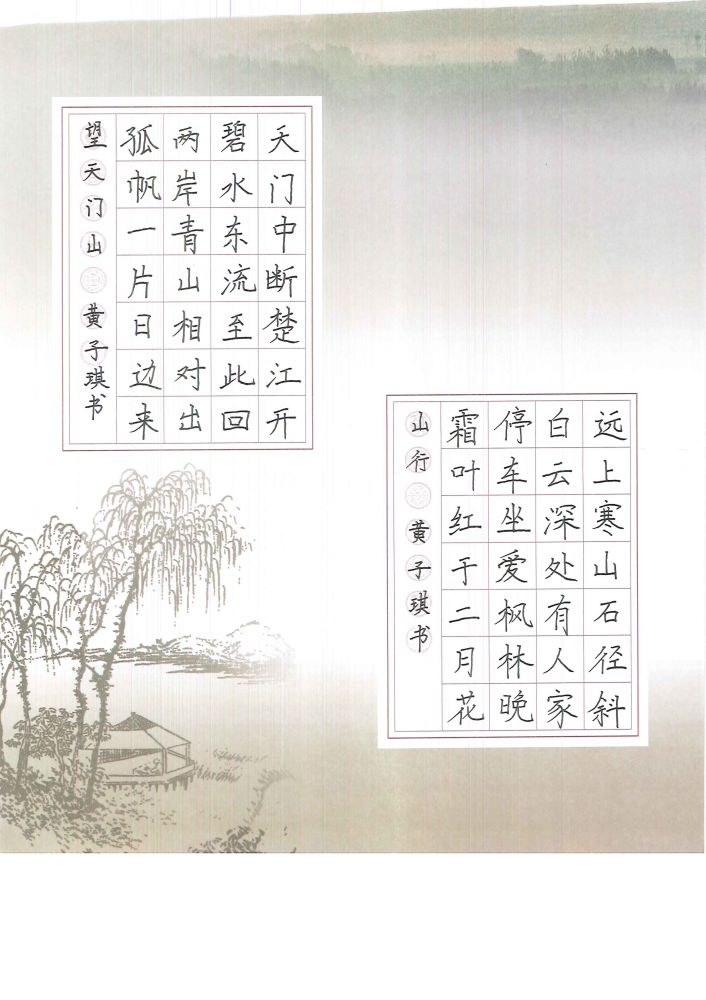 天门中断楚江开
碧水东流至此回
两岸青山相对出
孤帆一片日边来
望天门山 黄子琪书
远上寒山石径斜
白云深处有人家
停车坐爱枫林晚
霜叶红于二月花
山行 黄子琪书